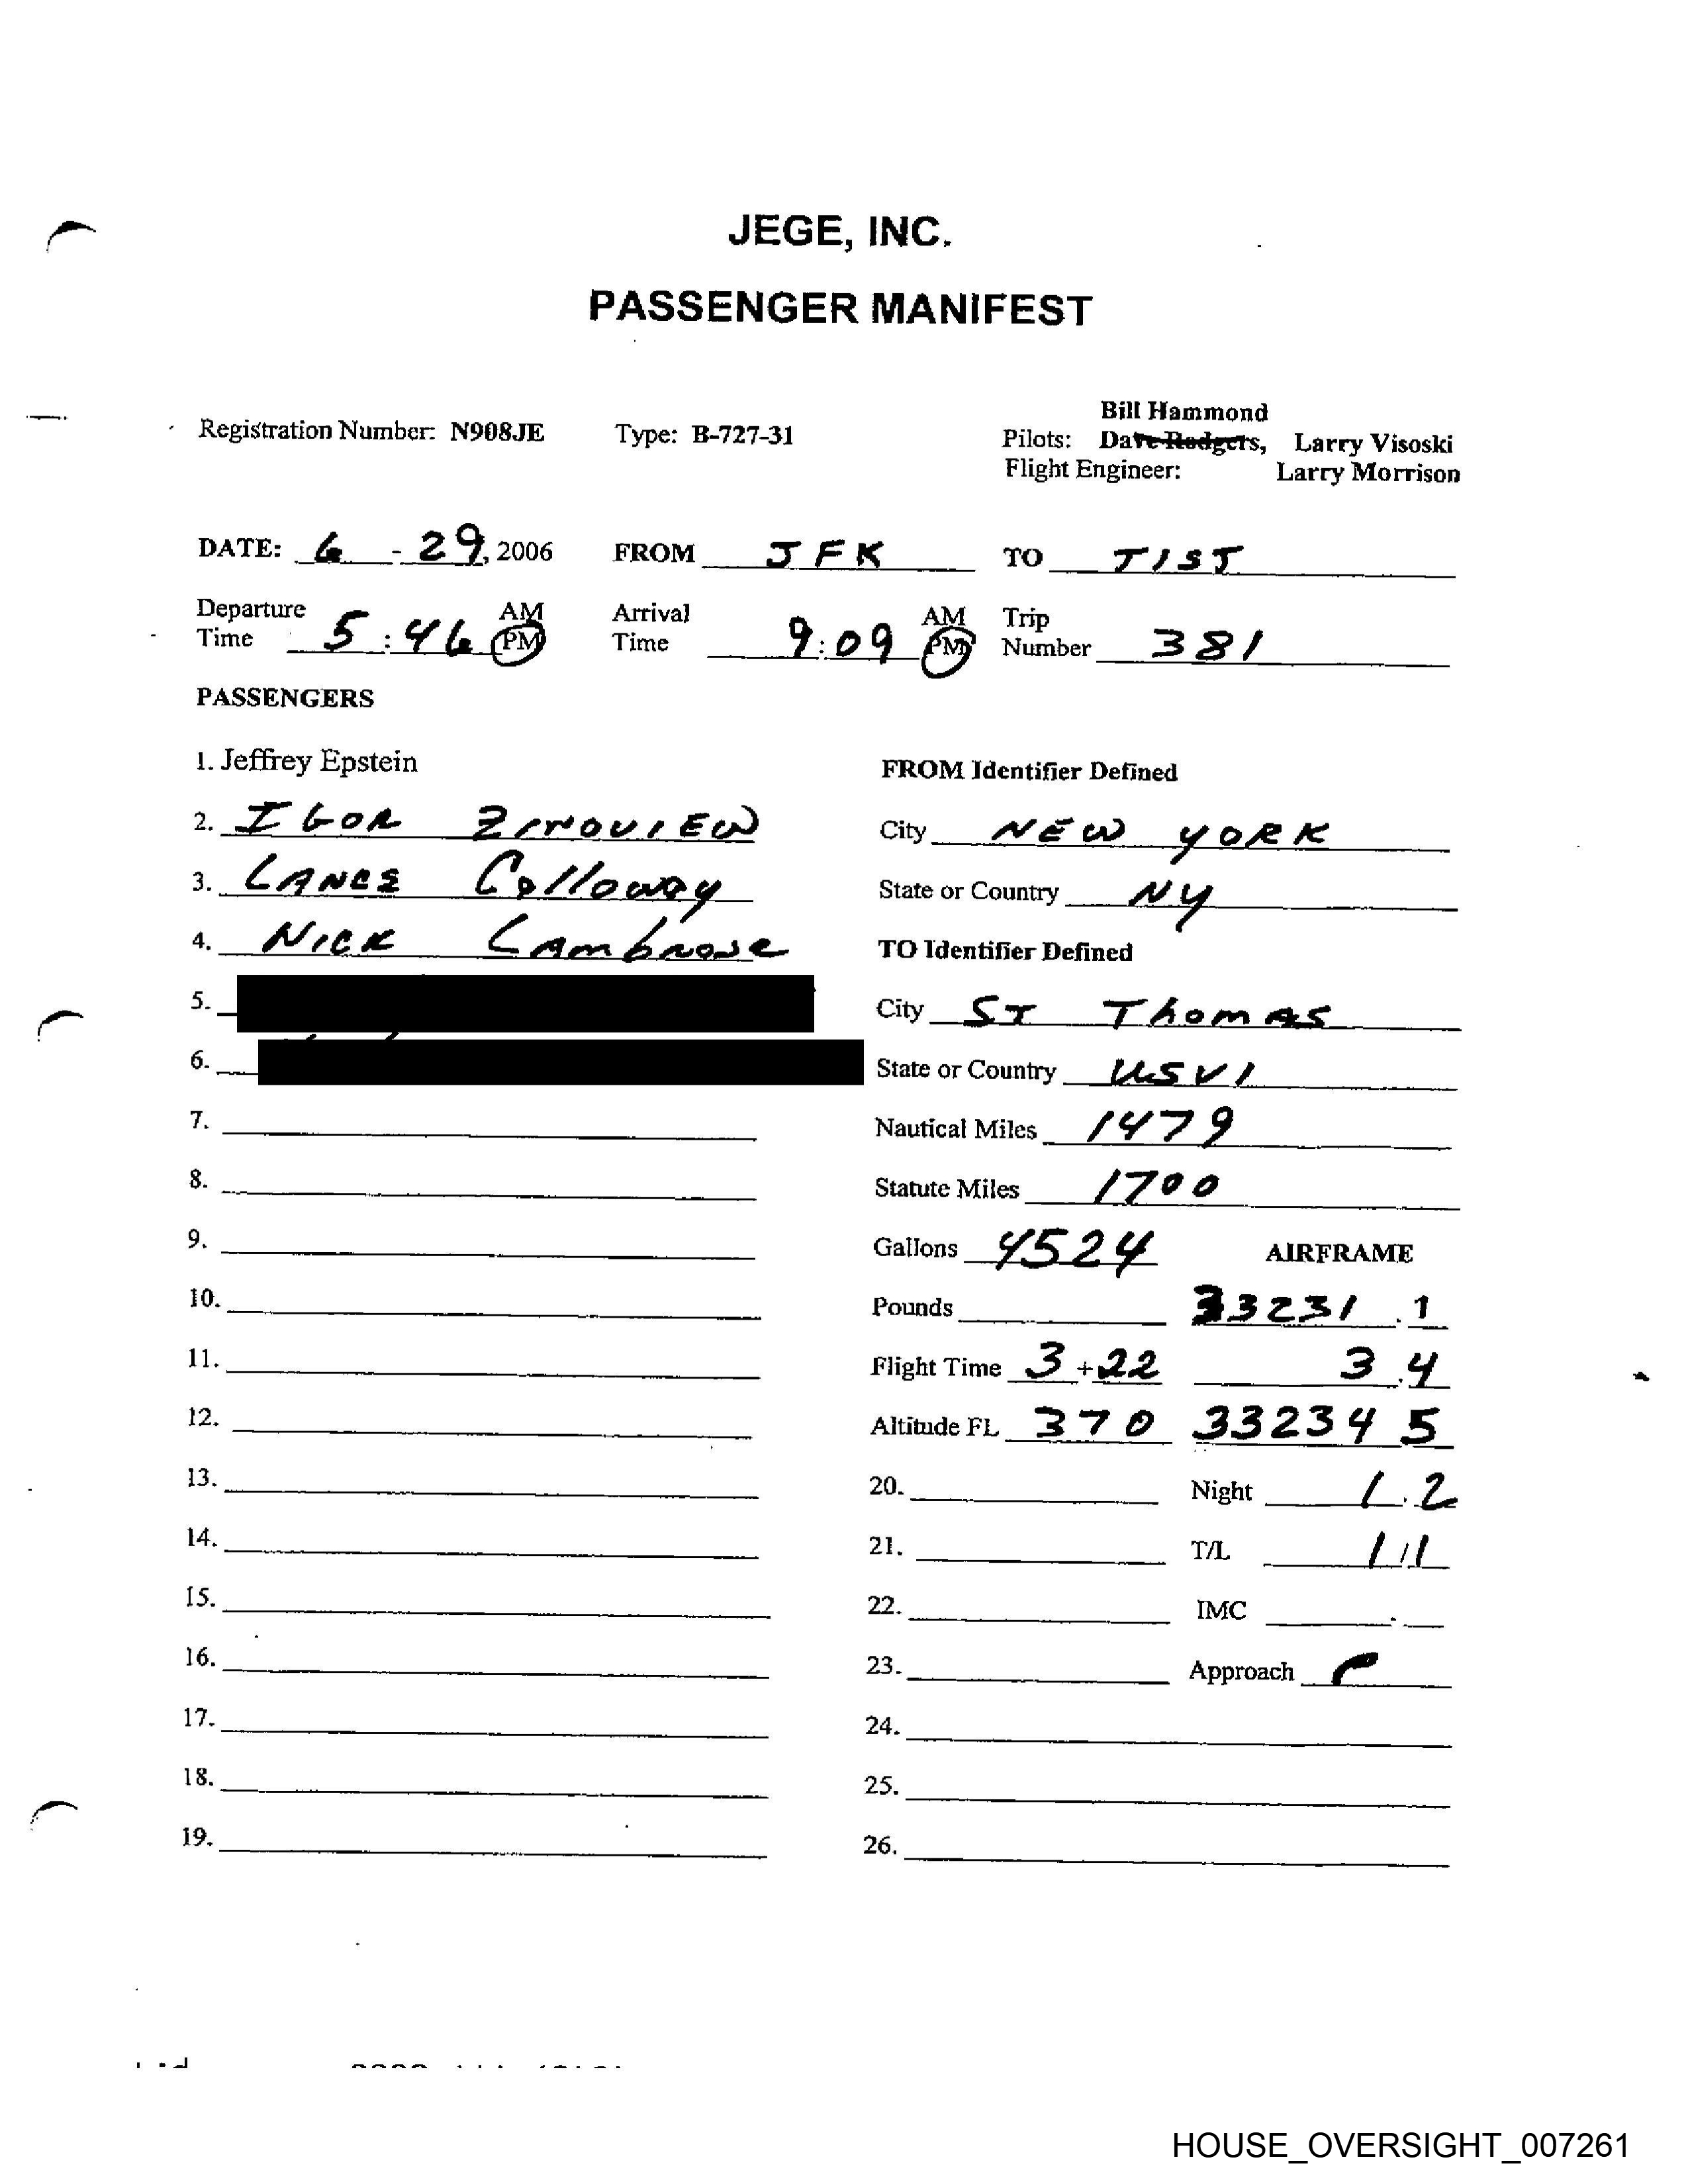 JEGE, INC.
PASSENGER MANIFEST
Bill Hammond
Registration Number: N908JE Type: B-727-31 Pilots: Dave Rodgers, Larry Visoski
Flight Engineer: Larry Morrison
DATE: 6 - 29, 2006 FROM JFK TO TIST
Departure Time 5:46 AM PM Arrival Time 9:09 AM PM Trip Number 381
PASSENGERS
1. Jeffrey Epstein FROM Identifier Defined
2. IGOR ZINOVIEW City NEW YORK
3. LANCE Colloway State or Country NY
4. NICK Lambrose TO Identifier Defined
5. City ST Thomas
6. State or Country USVI
7. Nautical Miles 1479
8. Statute Miles 1700
9. Gallons 4524 AIRFRAME
10. Pounds 33231.1
11. Flight Time 3+22 3.4
12. Altitude FL 370 33234 5
13. 20. Night 1.2
14. 21. T/L 1/1
15. 22. IMC
16. 23. Approach
17. 24.
18. 25.
19. 26.
HOUSE_OVERSIGHT_007261